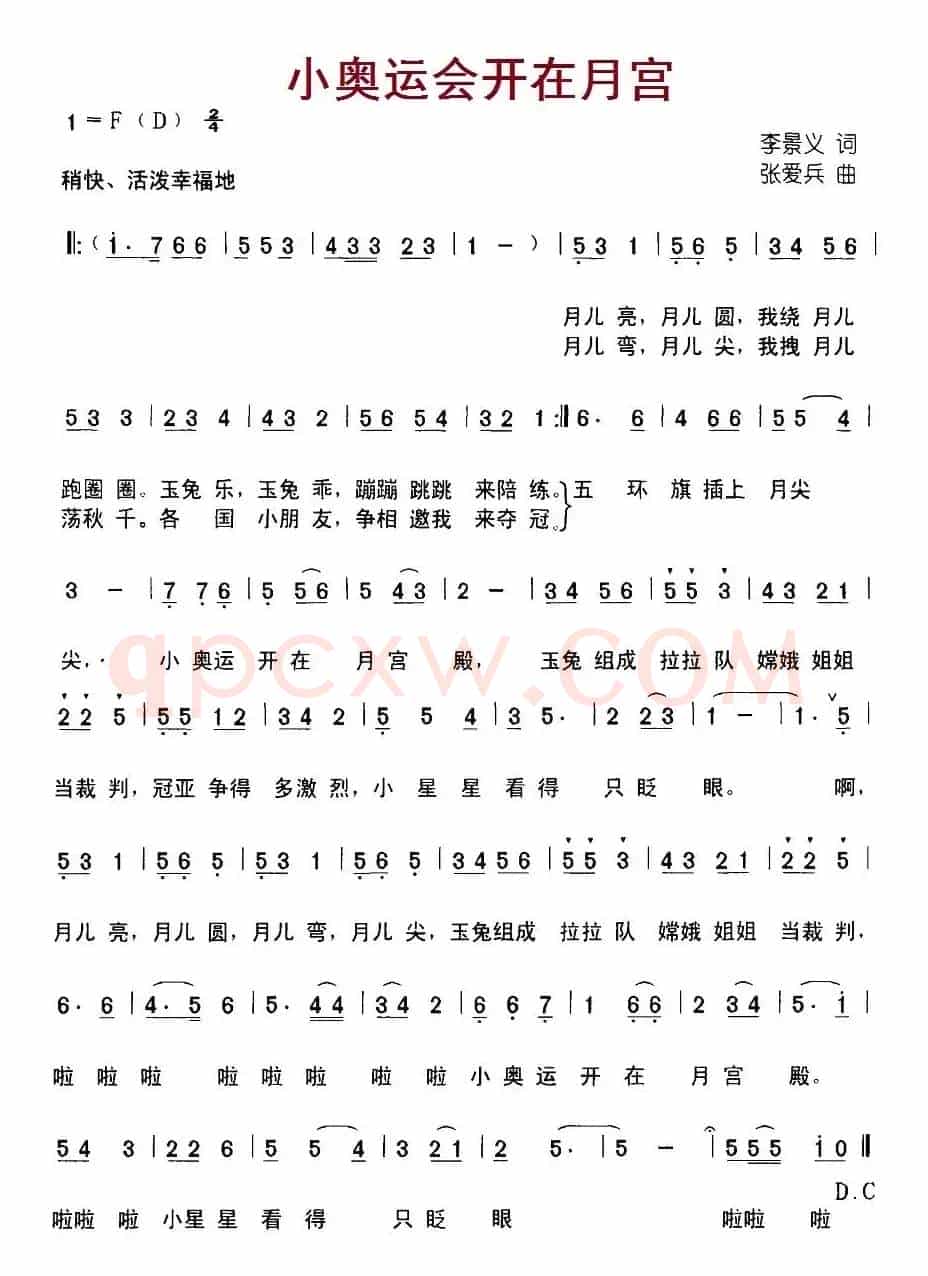 小奥运会开在月宫
1=F(D) 2/4
李景义 词
稍快、活泼幸福地
张爱兵 曲
‖:(i· 7 6 6 | 5 5 3 | 4 3 3 2 3 | 1 - ) | 5 3 1 | 5 6 5 | 3 4 5 6 |
月儿 亮，月儿 圆，我绕 月儿
月儿 弯，月儿 尖，我拽 月儿
5 3 3 | 2 3 4 | 4 3 2 | 5 6 5 4 | 3 2 1 :‖ 6· 6 | 4 6 6 | 5 5 4 |
跑圈 圈。玉兔 乐，玉兔 乖，蹦蹦 跳跳 来陪 练。五 环 旗 插上 月尖
荡秋 千。各 国 小朋 友，争相 邀我 来夺 冠。
3 - | 7 7 6 | 5 5 6 | 5 4 3 | 2 - | 3 4 5 6 | 5 5 3 | 4 3 2 1 |
尖， 小 奥运 开 在 月 宫 殿， 玉兔 组成 拉拉 队 嫦娥 姐姐
qpcxw.com
2 2 5 | 5 5 1 2 | 3 4 2 | 5 5 4 | 3 5· | 2 2 3 | 1 - | 1· 5 |
当裁 判，冠亚 争得 多激 烈，小 星 星 看 得 只 眨 眼。 啊，
5 3 1 | 5 6 5 | 5 3 1 | 5 6 5 | 3 4 5 6 | 5 5 3 | 4 3 2 1 | 2 2 5 |
月儿 亮，月儿 圆，月儿 弯，月儿 尖，玉兔组成 拉拉 队 嫦娥 姐姐 当裁 判，
6· 6 | 4· 5 6 | 5· 4 4 | 3 4 2 | 5 6 7 | 1 6 6 | 2 3 4 | 5· i |
啦 啦 啦 啦 啦 啦 啦 啦 小 奥 运 开 在 月 宫 殿。
5 4 3 | 2 2 6 | 5 5 4 | 3 2 1 | 2 5· | 5 - | 5 5 5 i 0 ‖
D.C
啦啦 啦 小星 星 看 得 只 眨 眼 啦啦 啦